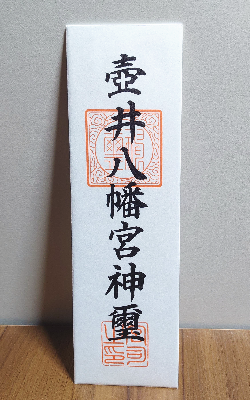 壺井八幡宮神璽